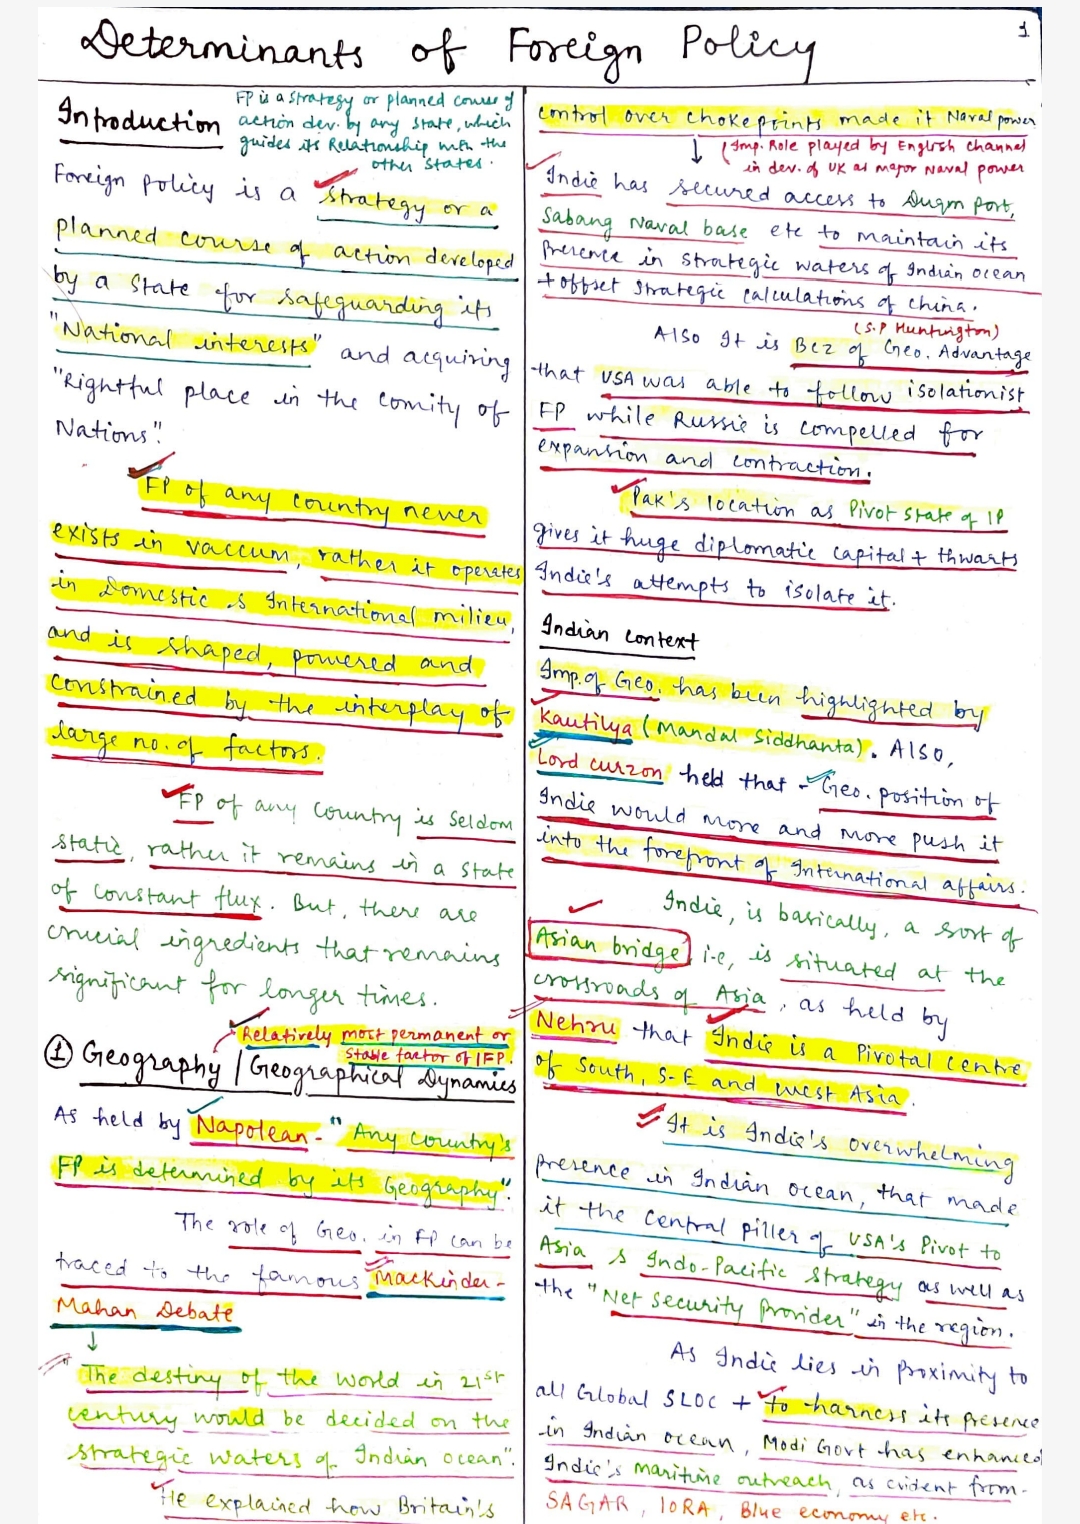 1
Determinants of Foreign Policy
Introduction
FP is a strategy or planned course of
action dev. by any state, which
guides its Relationship with the
other states.
Foreign Policy is a strategy or a
planned course of action developed
by a State for safeguarding its
"National interests" and acquiring
"Rightful place in the comity of
Nations".
FP of any country never
exists in vaccum, rather it operates
in Domestic & International milieu,
and is shaped, powered and
constrained by the interplay of
large no. of factors.
FP of any country is seldom
static, rather it remains in a state
of constant flux. But, there are
crucial ingredients that remains
significant for longer times.
Relatively most permanent or
stable factor of IFP.
① Geography / Geographical Dynamics
As held by Napolean - "Any country's
FP is determined by its Geography".
The role of Geo. in FP can be
traced to the famous Mackinder-
Mahan Debate
↓
The destiny of the world in 21st
century would be decided on the
strategic waters of Indian ocean".
He explained how Britain's
control over chokepoints made it Naval power
↓ (Imp. Role played by English channel
in dev. of UK as major Naval power
Indie has secured access to Duqm Port,
Sabang Naval base etc to maintain its
Presence in strategic waters of Indian ocean
+ offset strategic calculations of china.
(S.P Huntington)
Also It is Bcz of Geo. Advantage
that USA was able to follow isolationist
FP while Russie is compelled for
expansion and contraction.
Pak's location as Pivot state of IP
gives it huge diplomatic capital + thwarts
Indie's attempts to isolate it.
Indian context
Imp. of Geo. has been highlighted by
Kautilya (Mandal Siddhanta). Also,
Lord curzon held that - Geo. position of
Indie would more and more push it
into the forefront of International affairs.
Indie, is basically, a sort of
Asian bridge i.e, is situated at the
crossroads of Asia, as held by
Nehru that Indie is a Pivotal centre
of South, S-E and west Asia.
It is Indie's overwhelming
presence in Indian ocean, that made
it the central piller of USA's Pivot to
Asia & Indo-Pacific strategy as well as
the "Net security Provider" in the region.
As Indie lies in Proximity to
all Global SLOC + to harness its presence
in Indian ocean, Modi Govt has enhanced
Indie's maritime outreach, as evident from-
SAGAR, IORA, Blue economy etc.